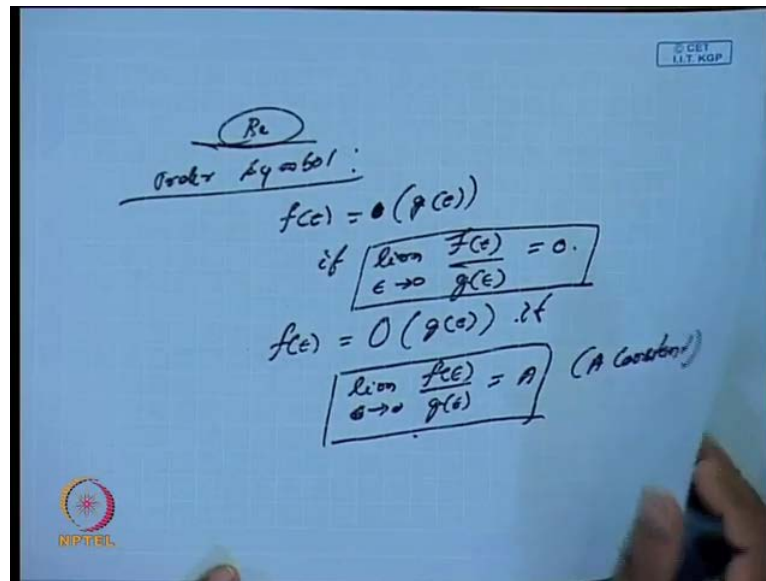 © CET
I.I.T. KGP
Re
Order Symbol:
f(ϵ) = o (g(ϵ))
if lim ϵ→0 f(ϵ)/g(ϵ) = 0.
f(ϵ) = O (g(ϵ)) if
lim ϵ→0 f(ϵ)/g(ϵ) = A (A Constant)
NPTEL